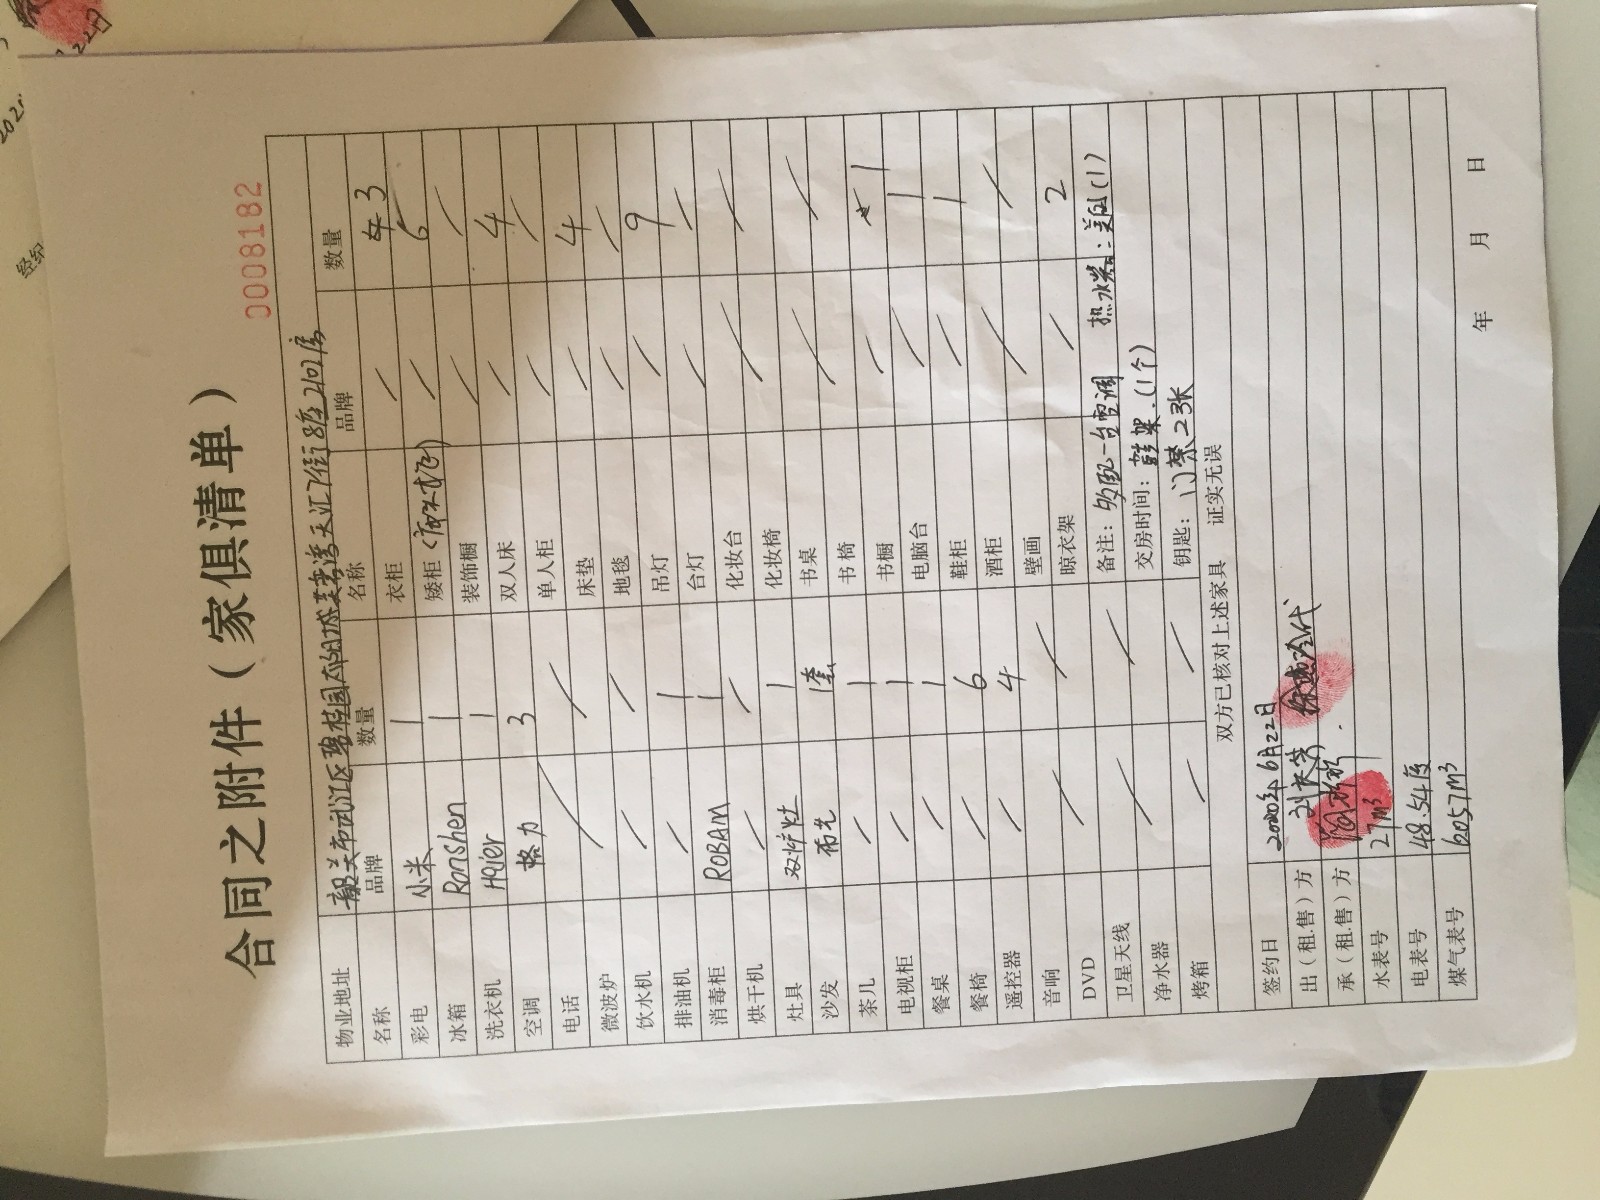 0008182
合同之附件（家俱清单）
物业地址 韶关市武江区碧桂园太阳城芙蓉湾天汇7街8座2102房
名称 品牌 数量 名称 品牌 数量
彩电 小米 1 衣柜 / 3
冰箱 Ronshen 1 矮柜（床头柜） / 6
洗衣机 Haier 1 装饰橱 / /
空调 格力 3 双人床 / 4
电话 / / 单人柜 / /
微波炉 / / 床垫 / 4
饮水机 / / 地毯 / /
排油机 / 1 吊灯 / 9
消毒柜 ROBAM 1 台灯 / /
烘干机 / / 化妆台 / /
灶具 双炉灶 1 化妆椅
沙发 布艺 1套 书桌 / /
茶几 / 1 书椅
电视柜 / 1 书橱 / 1
餐桌 / 1 电脑台 / 1
餐椅 / 6 鞋柜 / 1
遥控器 / 4 酒柜 / /
音响 / / 壁画
DVD 晾衣架 / 2
卫星天线 / / 备注：多配一台空调 热水器：美的(1)
净水器 交房时间：鞋架.(1个)
烤箱 / / 钥匙：门禁=3张
双方已核对上述家具 证实无误
签约日 2020年6月22日
出（租.售）方
承（租.售）方
水表号 27m³
电表号 48.54度
煤气表号 6057m³
年 月 日